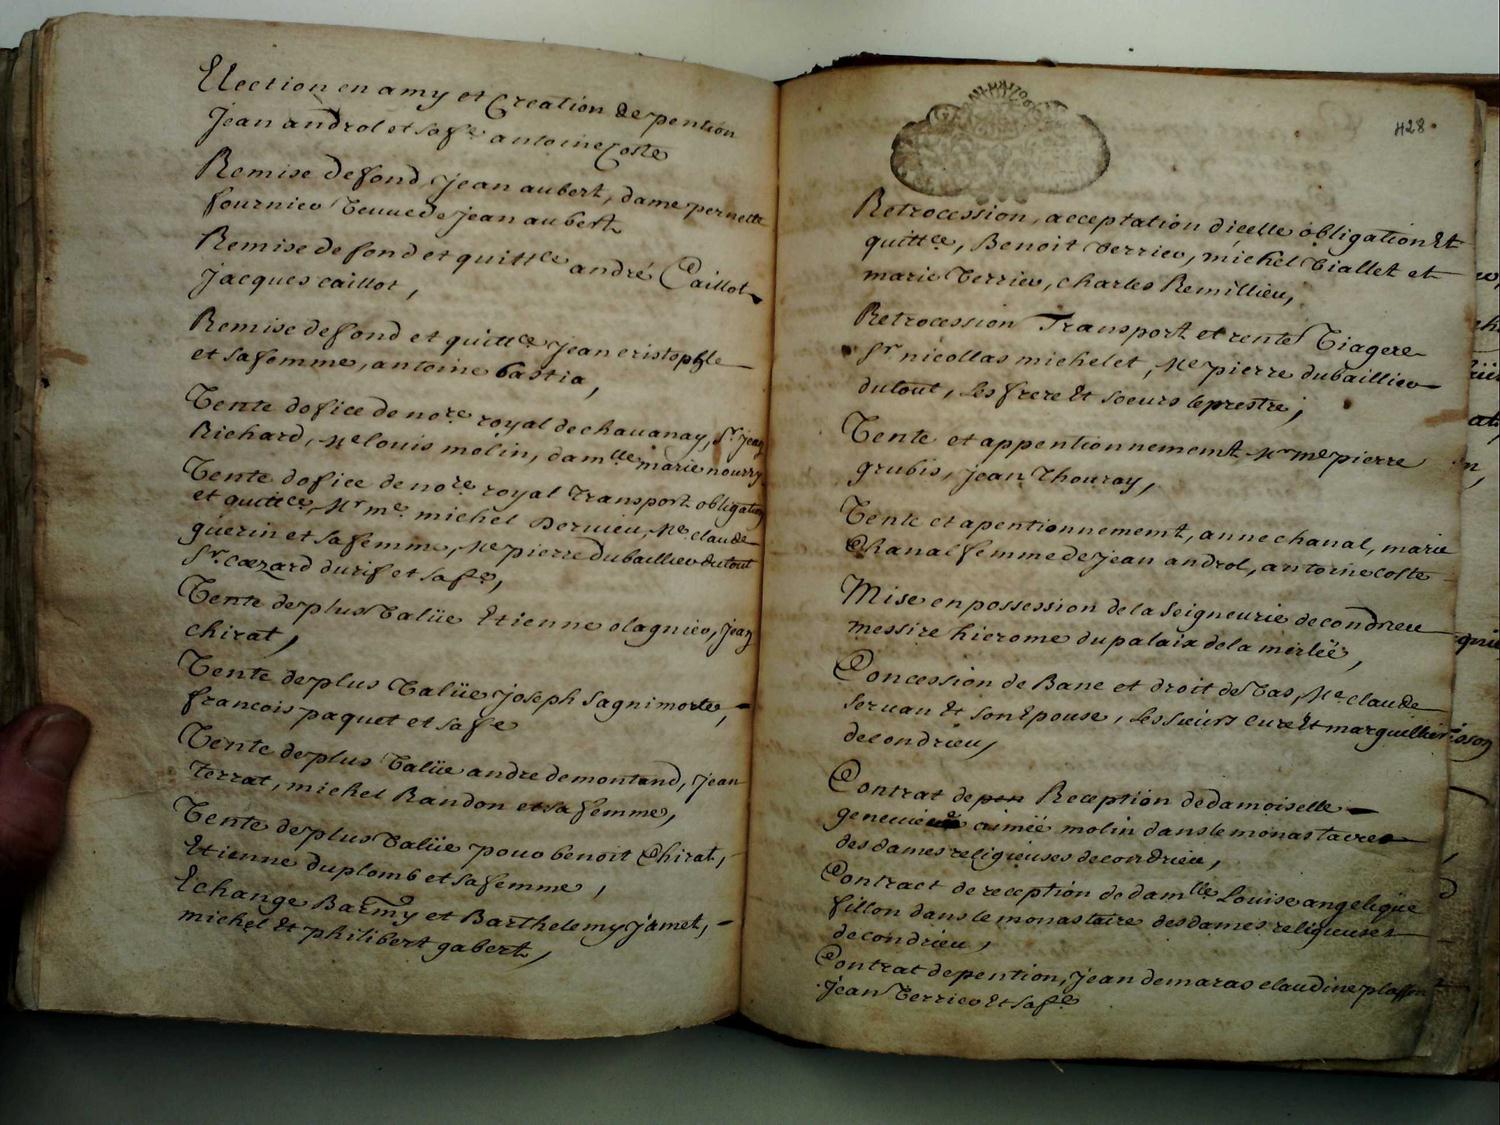 Election en amy et Creation de pention
Jean androl et sa fe antoine Coste
Remise de fond, Jean aubert, dame pernette
fournier veuve de Jean aubert
Remise de fond et quittce andré Caillot
Jacques caillot,
Remise de fond et quittce Jean cristophle
et sa femme, antoine bastia,
Vente dofice de nore royal de chauanay, Sr Jean
Richard, Me louis molin, damlle marie nourry
Vente dofice de nore royal Transport obligation
et quittce, Mr me michel Dervieu, Me claude
guerin et sa femme, Me pierre Dubaillier dutout
Sr Cæzard durif et sa fe,
Vente de plus Valüe Etienne olagnier, Jean
chirat,
Vente de plus Valüe Joseph Sagnimorte,
francois paquet et sa fe
Vente de plus Valüe andre demontand, Jean
terrat, michel Randon et sa femme,
Vente de plus Valüe pour benoit Chirat,
Etienne duplomb et sa femme,
Echange Barmy et Barthelemy Jamet,
michel Et philibert gabert,
428
Retrocession, acceptation dicelle obligation Et
quittce, Benoit Verrier, michel Viallet et
marie Verrier, charles Remillieu,
Retrocession Transport et rente Viagere
Sr nicollas michelet, Me pierre dubaillier
dutout, Les frere Et soeurs leprestre,
Vente et appentionnement Mr me pierre
grubis, Jean Thouray,
Vente et apentionnememt, anne chanal, marie
Chanal femme de Jean androl, antoine coste
Mise en possession de la Seigneurie de condrieu
messire hierome du palaix de la merlëe,
Concession de Banc et droit de Vas, Me claude
Seruan Et son Epouse, Les sieurs Curé Et marguilliers
de condrieu,
Contrat de Reception de damoiselle
geneuieue aimëe molin dans le monastaire
des dames religieuses de condrieu,
Contract de reception de damlle Louise angelique
fillon dans le monastaire des dames religieuses
de condrieu,
Contrat de pention, Jean demaras claudine plasson
Jean Verrier Et sa fe